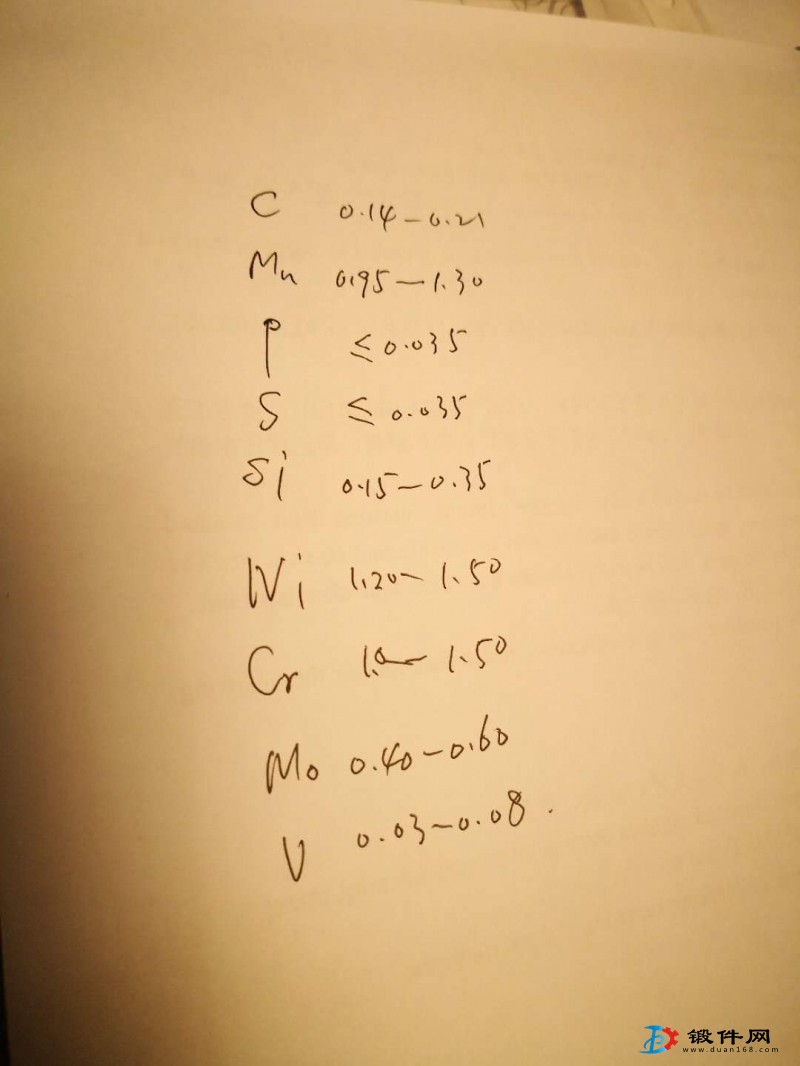 C 0.14-0.21
Mn 0.95-1.30
P ≤0.035
S ≤0.035
Si 0.15-0.35
Ni 1.20-1.50
Cr 1.0-1.50
Mo 0.40-0.60
V 0.03-0.08.
锻件网
www.duan168.com